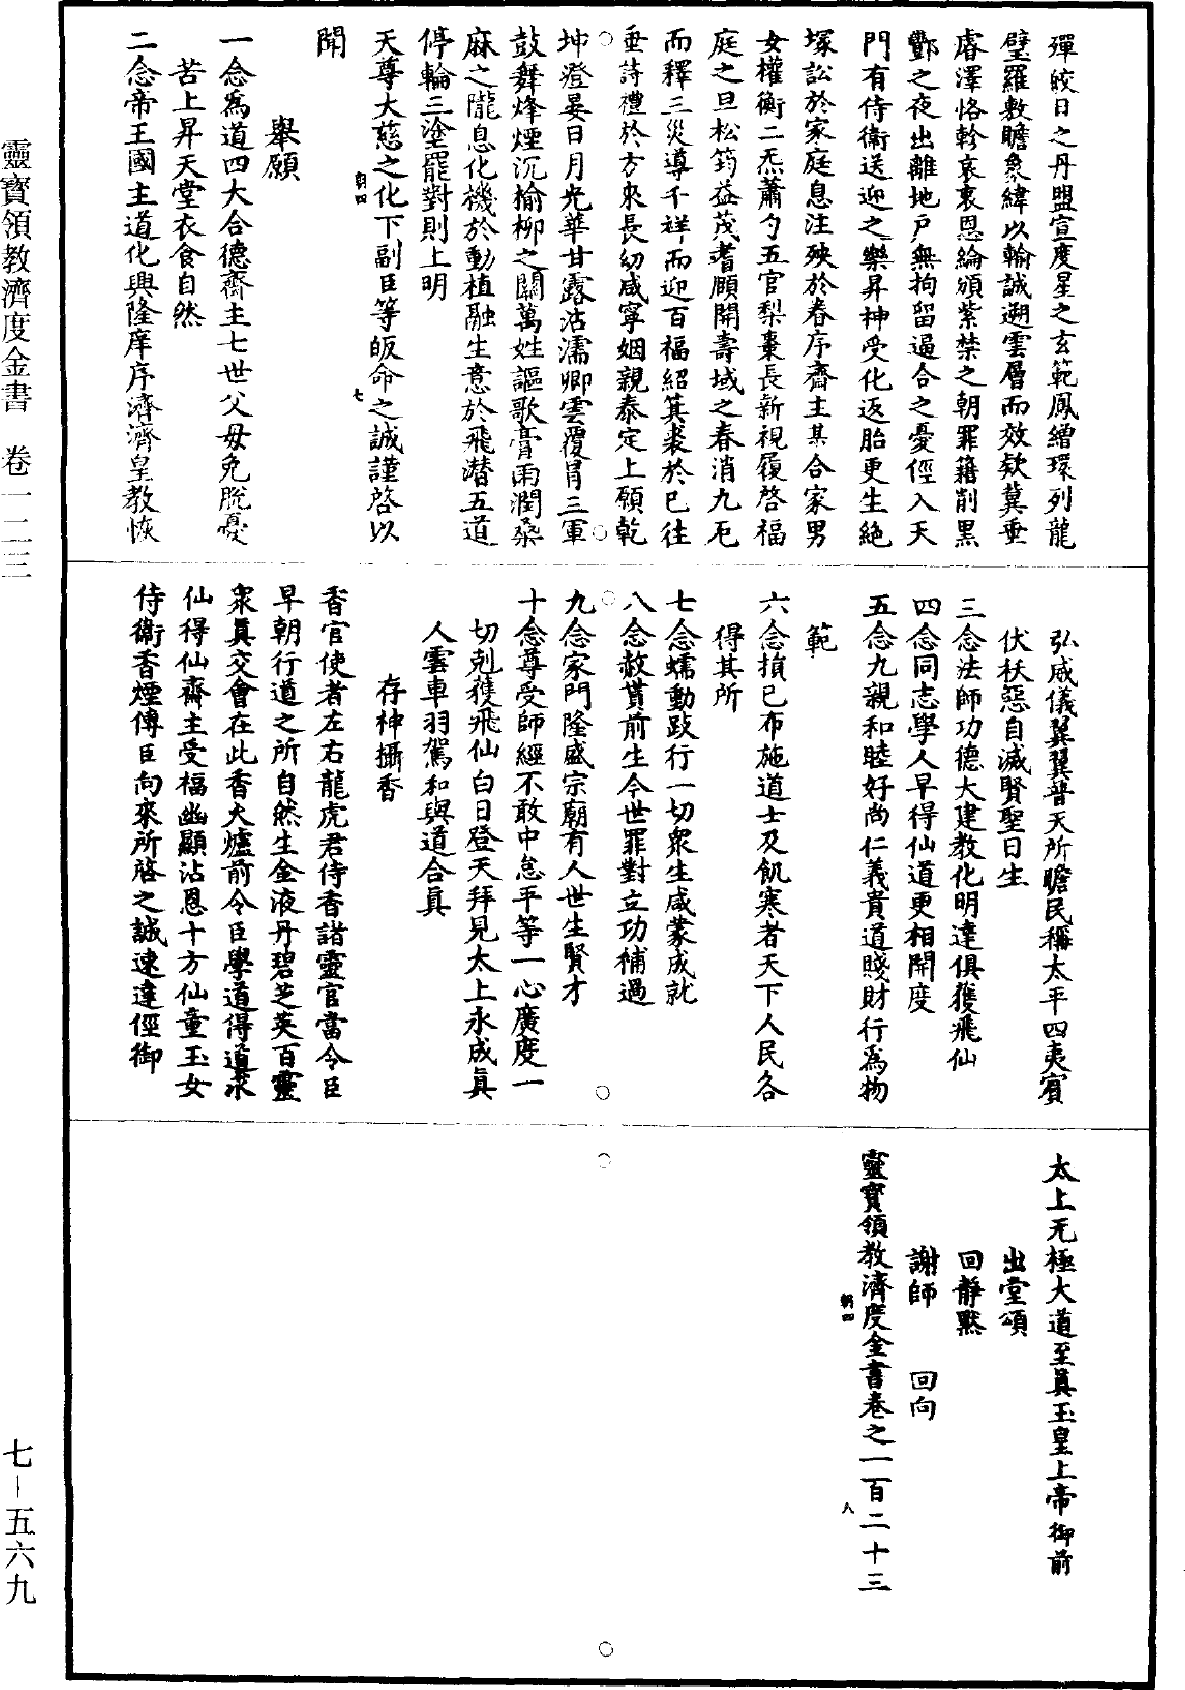 殫皎日之丹盟宣度星之玄範鳳繒環列龍
璧羅敷瞻象緯以輸誠遡雲層而效欵冀垂
睿澤恪軫哀衷恩綸頒紫禁之朝罪籍削黑
酆之夜出離地戶無拘留逼合之憂徑入天
門有侍衞送迎之樂昇神受化返胎更生絕
塚訟於家庭息注殃於春序齋主某合家男
女權衡二炁蕭勺五官梨棗長新視履啓福
庭之旦松筠益茂耆頤開壽域之春消九厄
而釋三災導千祥而迎百福紹箕裘於已往
垂詩禮於方來長幼咸寧姻親泰定上願乾
坤澄晏日月光華甘露沾濡卿雲覆冒三軍
鼓舞烽煙沉榆柳之關萬姓謳歌膏雨潤桑
麻之隴息化機於動植融生意於飛潛五道
停輪三塗罷對則上明
天尊大慈之化下副臣等皈命之誠謹啓以
聞
朝四
七
舉願
一念爲道四大合德齋主七世父母免脫憂
苦上昇天堂衣食自然
二念帝王國主道化興隆庠序濟濟皇教恢
弘威儀翼翼普天所瞻民稱太平四夷賓
伏秡惡自滅賢聖日生
三念法師功德大建教化明達俱獲飛仙
四念同志學人早得仙道更相開度
五念九親和睦好尚仁義貴道賤財行爲物
範
六念損己布施道士及飢寒者天下人民各
得其所
七念蠕動跂行一切衆生咸蒙成就
八念赦貰前生今世罪對立功補過
九念家門隆盛宗廟有人世生賢才
十念尊受師經不敢中怠平等一心廣度一
切剋獲飛仙白日登天拜見太上永成眞
人雲車羽駕和與道合眞
存神攝香
香官使者左右龍虎君侍香諸靈官當令臣
早朝行道之所自然生金液丹碧芝英百靈
衆眞交會在此香火爐前令臣學道得道求
仙得仙齋主受福幽顯沾恩十方仙童玉女
侍衞香煙傳臣向來所啓之誠速達徑御
太上无極大道至眞玉皇上帝御前
出堂頌
回靜默
謝師 回向
靈寶領教濟度金書卷之一百二十三
朝四
八
靈寶領教濟度金書 卷一二三
七－五六九